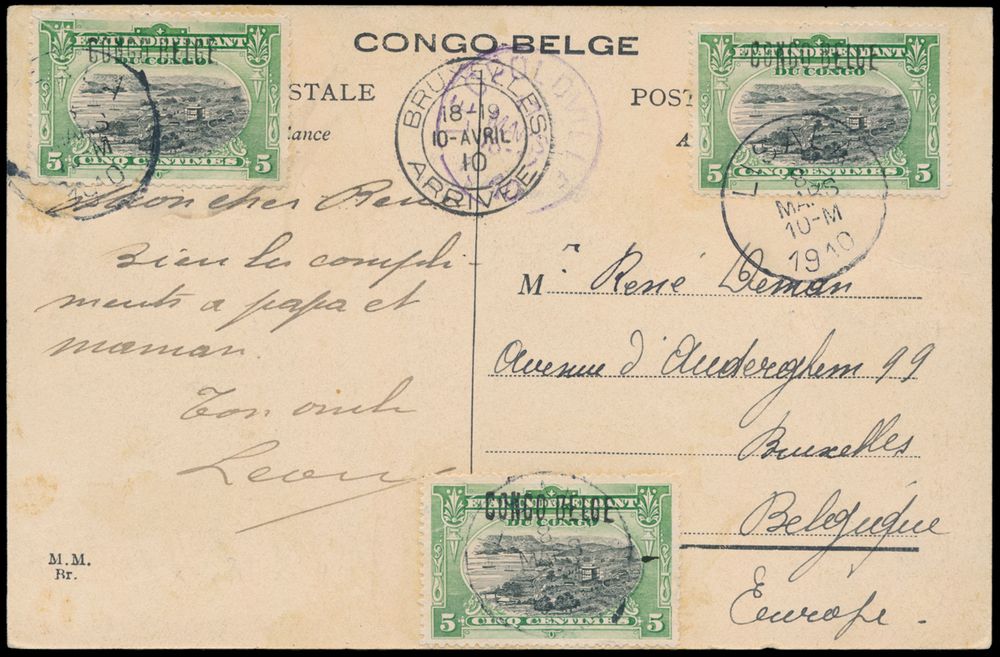 CONGO BELGE
CONGO BELGE
ETAT INDÉPENDANT
DU CONGO
5 CINQ CENTIMES 5
STALE
lance
BRUXELLES
18-19
10-AVRIL
10
ARRIVÉE
CONGO BELGE
ETAT INDÉPENDANT
DU CONGO
5 CINQ CENTIMES 5
POST
A
8
MARS
10-M
1910
Mon cher René
Bien les compli-
ments a papa et
maman.
Ton oncle
Leon
Mr René Deman
Avenue d'Auderghem 99
Bruxelles
Belgique
Europe.
CONGO BELGE
ETAT INDÉPENDANT
DU CONGO
5 CINQ CENTIMES 5
8
MARS
M.M.
Br.